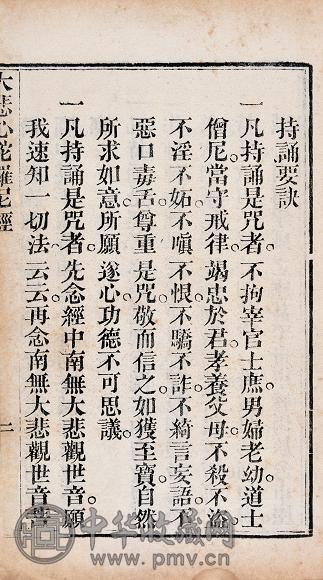 持誦要訣
一凡持誦是咒者不拘宰官士庶男婦老幼道士
僧尼當守戒律竭忠於君孝養父母不殺不盜
不淫不妬不嗔不恨不驕不詐不綺言妄語不
惡口毒舌尊重是咒敬而信之如獲至寶自然
所求如意所願遂心功德不可思議
一凡持誦是咒者先念經中南無大悲觀世音願
我速知一切法云云再念南無大悲觀世音菩
大悲心陀羅尼經
二
中华收藏网
www.pmv.cn